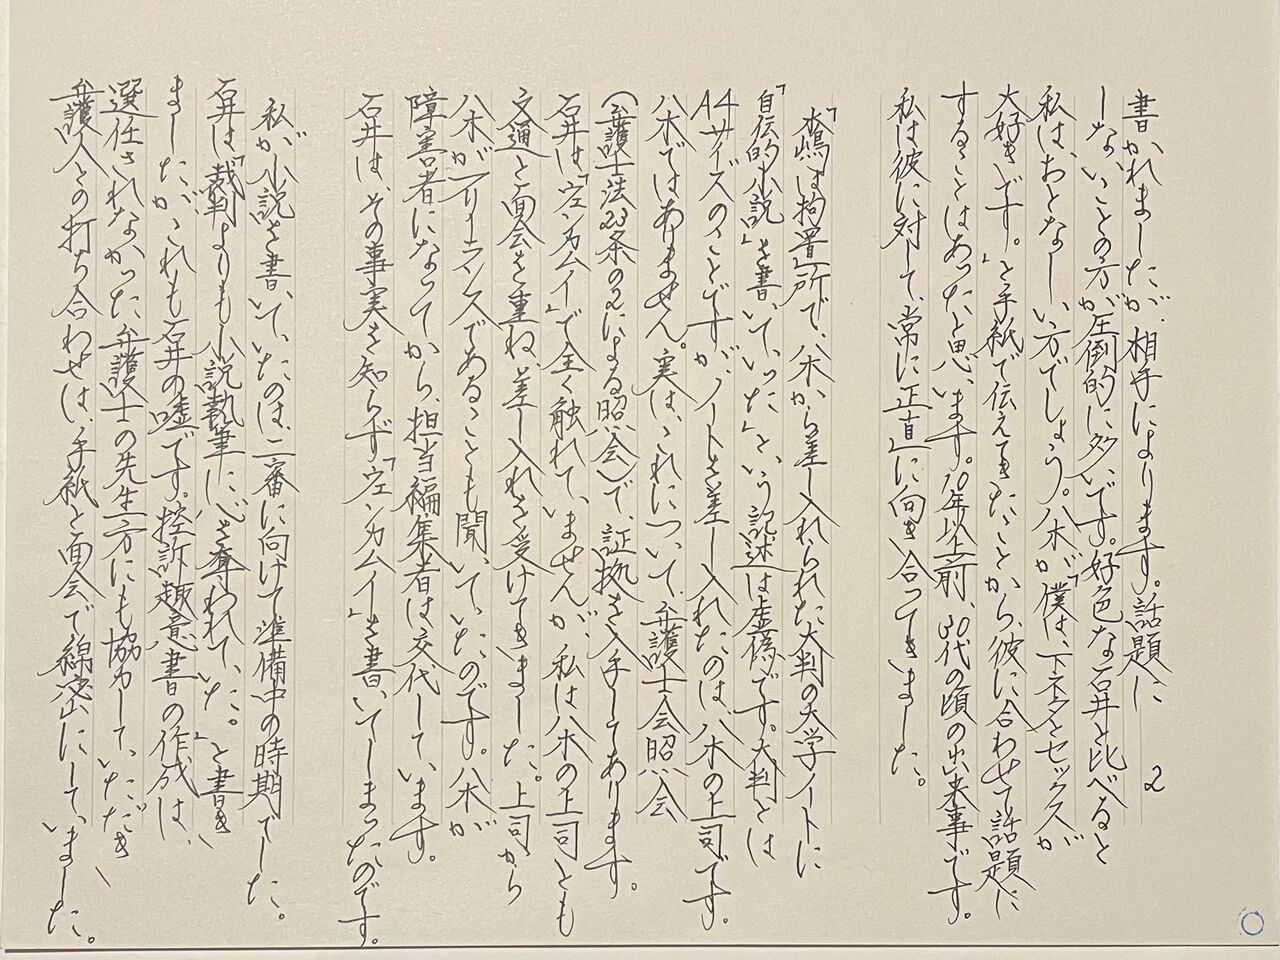 2
書かれましたが、相手によります。話題に
しないことの方が圧倒的に多いです。好色な石井と比べると
私は、おとなしい方でしょう。八木が「僕は、下ネタとセックスが
大好きです。」と手紙で伝えてきたことから、彼に合わせて話題に
することはあったと思います。10年以上前、30代の頃の出来事です。
私は彼に対して、常に正直に向き合ってきました。
「水嶋は拘置所で、八木から差し入れられた大判の大学ノートに
『自伝的小説』を書いていった」という記述は虚偽です。大判とは
A4サイズのことですが、ノートを差し入れたのは、八木の上司です。
八木ではありません。実は、これについて、弁護士会照会
(弁護士法23条の2による照会)で、証拠を入手してあります。
石井は、「ウェンカムイ」で全く触れていませんが、私は八木の上司とも
文通と面会を重ね、差し入れを受けてきました。上司から
八木がフリーランスであることも聞いていたのです。八木が
障害者になってから、担当編集者は交代しています。
石井は、その事実を知らず、「ウェンカムイ」を書いてしまったのです。
私が小説を書いていたのは、二審に向けて準備中の時期でした。
石井は「裁判よりも小説執筆に心を奪われていた。」と書き
ましたが、これも石井の嘘です。控訴趣意書の作成は、
選任されなかった弁護士の先生方にも協力していただき
弁護人との打ち合わせは、手紙と面会で綿密にしていました。